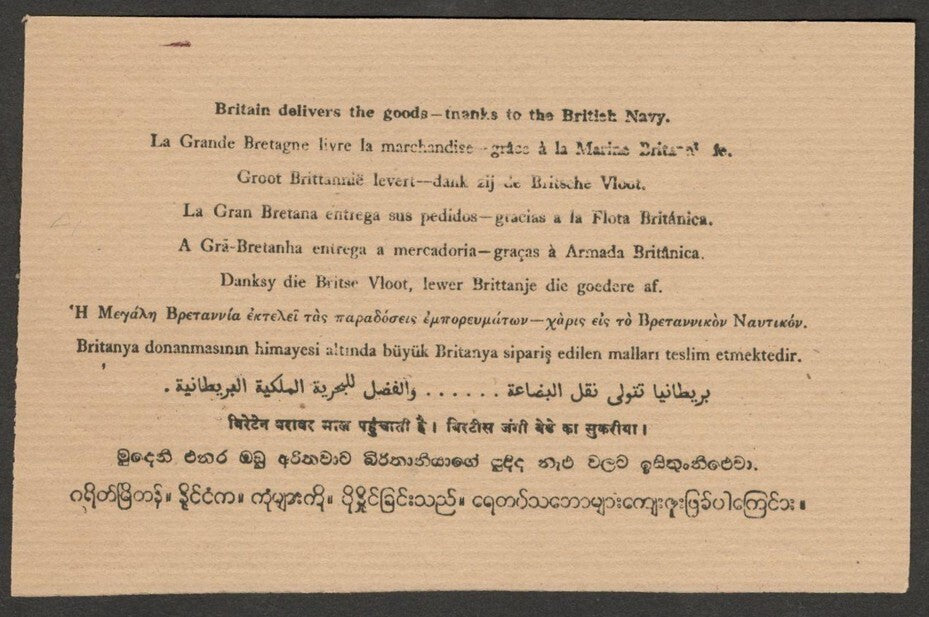 Britain delivers the goods—tnanks to the British Navy.
La Grande Bretagne livre la marchandise—grâce à la Marine
Groot Brittannië levert—dank zij de Britsche Vloot.
La Gran Bretana entrega sus pedidos—gracias a la Flota Británica.
A Grã-Bretanha entrega a mercadoria—graças à Armada Británica.
Danksy die Britse Vloot, lewer Brittanje die goedere af.
Ἡ Μεγάλη Βρεταννία ἐκτελεῖ τὰς παραδόσεις ἐμπορευμάτων—χάρις εἰς τὸ Βρεταννικὸν Ναυτικόν.
Britanya donanmasının himayesi altında büyük Britanya sipariş edilen malları teslim etmektedir.
بريطانيا تتولى نقل البضاعة . . . . . . والفضل للبحرية الملكية البريطانية .
बिरेटेन बराबर माल पहुंचाती है। बिरटीस जंगी बेडे का सुकरीया।
මුදෙනි එතර ඔබු
ဂရိတ်မြိတန်။ နိုင်ငံက။ ကုံများကို။ ပို့နှိုင်ခြင်းသည်။ ရေတပ်သဘောများကျေးဇူးဖြခ်ပါကြောင်း။